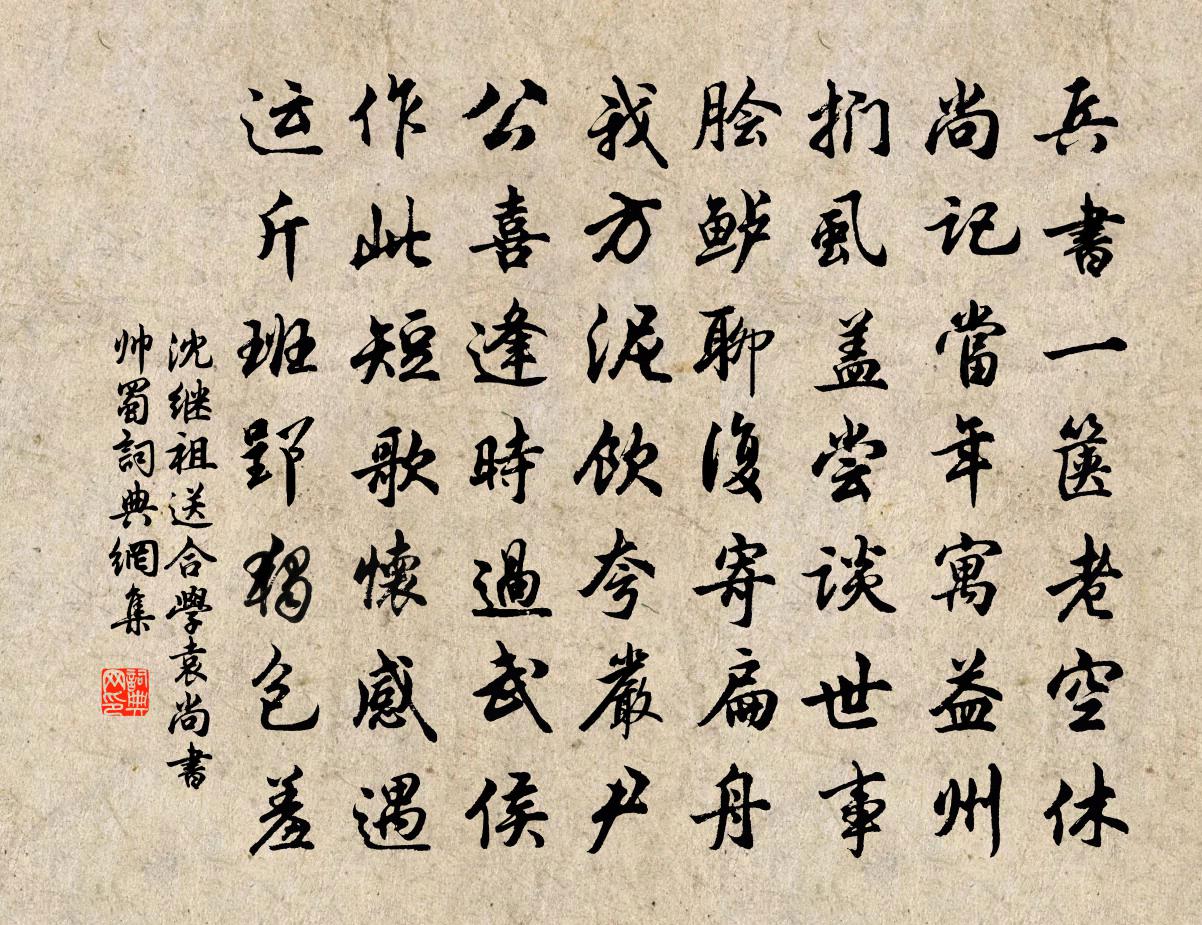 兵書一箧老空休
尚記當年寓益州
扪虱盖尝談世事
脍鲈聊復寄扁舟
我方泥飲夸嚴尹
公喜逢時過武侯
作此短歌懷感遇
运斤班郢獨包羞
沈继祖送合學袁尚書
帅蜀詞典網集
詞典网印